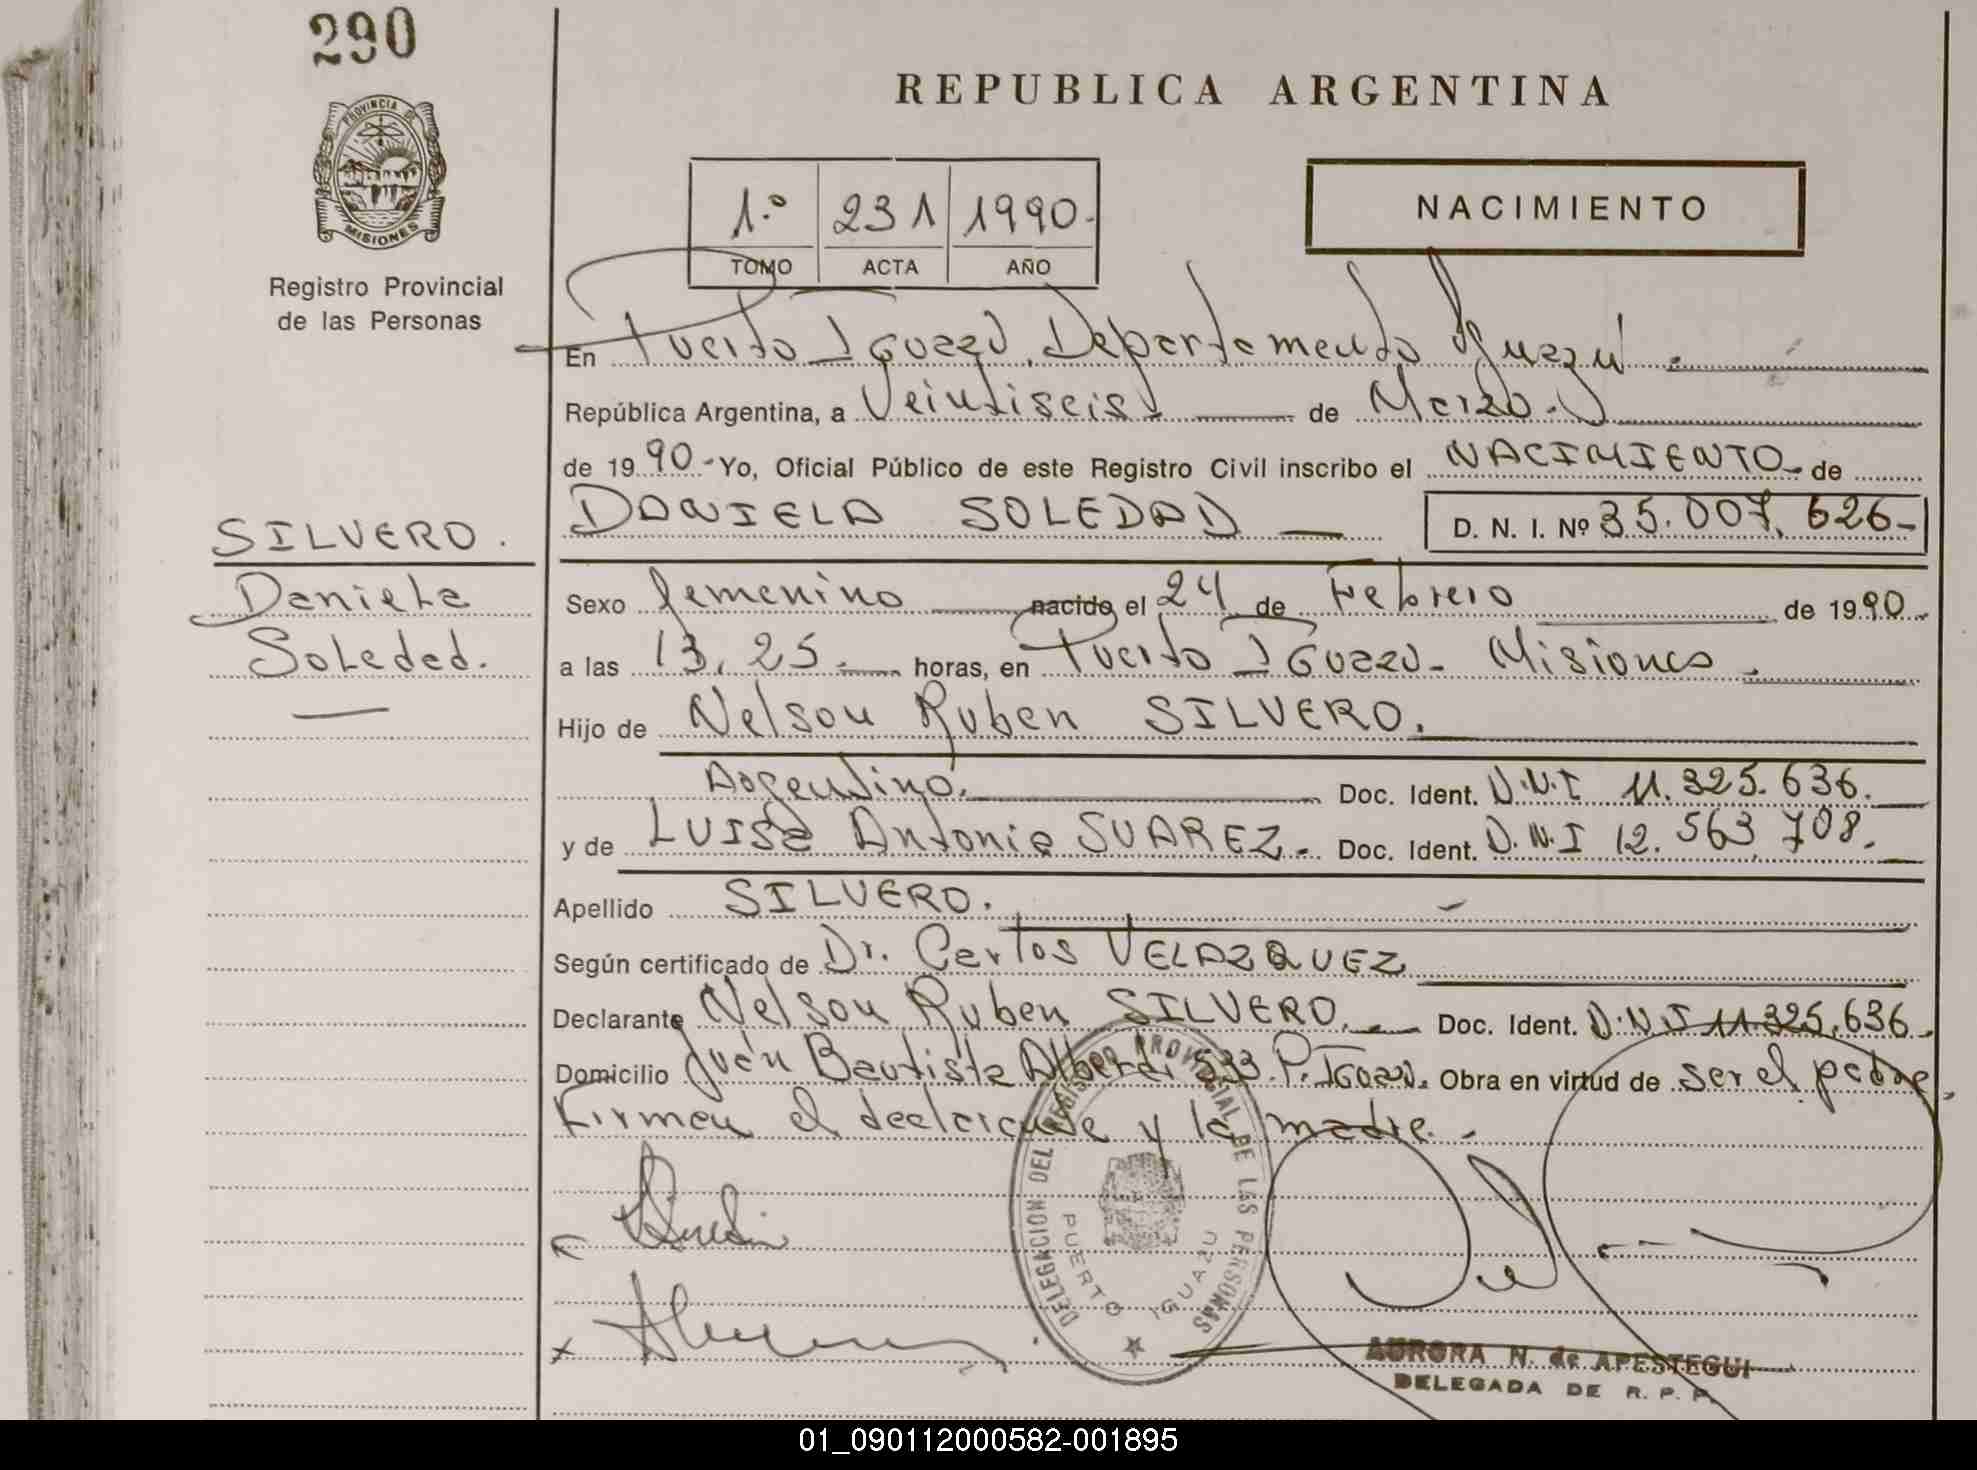 290
PROVINCIA DE
MISIONES
Registro Provincial
de las Personas
REPUBLICA ARGENTINA
1.º 231 1990-
TOMO ACTA AÑO
NACIMIENTO
En Puerto Iguazú, Departamento Iguazú
República Argentina, a Veintiseis de Marzo.
de 1990-Yo, Oficial Público de este Registro Civil inscribo el NACIMIENTO de
DANIELA SOLEDAD D. N. I. Nº 35.007.626-
SILVERO.
Daniela
Soledad.
Sexo femenino nacido el 24 de Febrero de 1990
a las 13.25 horas, en Puerto Iguazú- Misiones.
Hijo de Nelson Ruben SILVERO.
Argentino. Doc. Ident. D.N.I 11.325.636.
y de LUISa Antonia SUAREZ. Doc. Ident. D.N.I 12.563.708.
Apellido SILVERO.
Según certificado de Dr. Carlos VELAZQUEZ
Declarante Nelson Ruben SILVERO. Doc. Ident. D.N.I 11.325.636.
Domicilio Juan Bautista Alberdi 533. P. Iguazú. Obra en virtud de ser el padre.
Firman el declarante y la madre.
DELEGACION DEL REGISTRO PROVINCIAL DE LAS PERSONAS
PUERTO IGUAZU
AURORA N. de APESTEGUI
DELEGADA DE R. P. P.
01_090112000582-001895